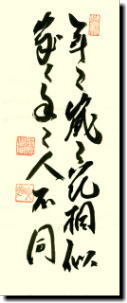 年々歳々花相似
歳々年々人不同